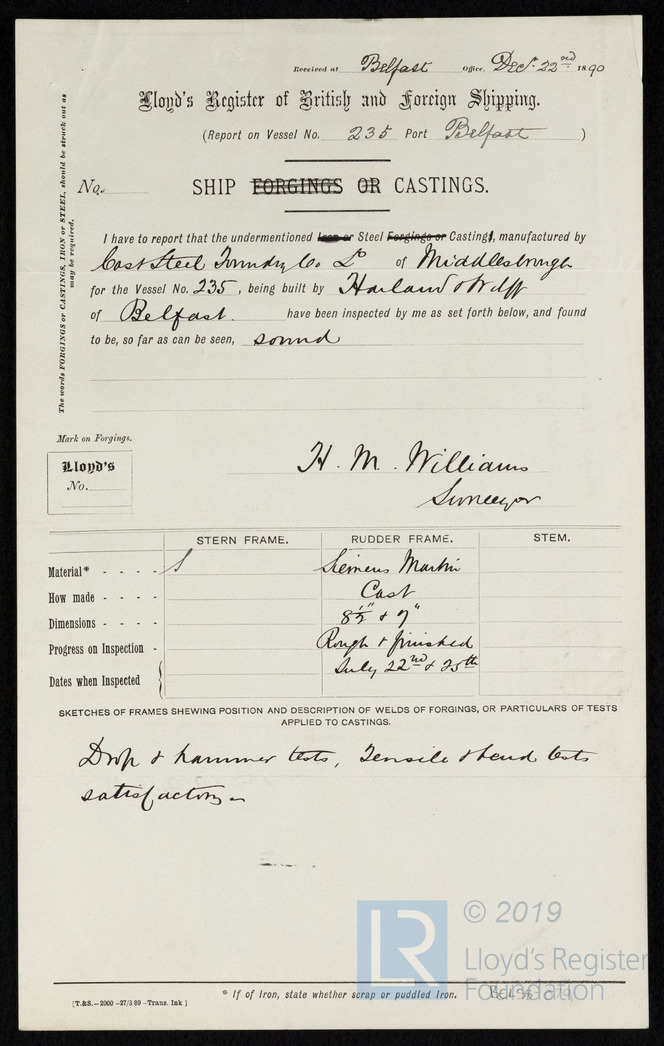 Received at Belfast Office, Dec. 22nd 1890
Lloyd's Register of British and Foreign Shipping.
(Report on Vessel No. 235 Port Belfast )
No.
SHIP FORGINGS OR CASTINGS.
The words FORGINGS or CASTINGS, IRON or STEEL, should be struck out as may be required.
I have to report that the undermentioned Iron or Steel Forgings or Casting, manufactured by
Cast Steel Foundry Co Ld of Middlesbrough
for the Vessel No. 235, being built by Harland & Wolff
of Belfast. have been inspected by me as set forth below, and found
to be, so far as can be seen, sound
Mark on Forgings.
Lloyd's
No.
H. M. Williams
Surveyor
STERN FRAME. RUDDER FRAME. STEM.
Material* - - - - Siemens Martin
How made - - - - Cast
Dimensions - - - - 8½" & 7"
Progress on Inspection - Rough & finished
Dates when Inspected July 22nd & 25th
SKETCHES OF FRAMES SHEWING POSITION AND DESCRIPTION OF WELDS OF FORGINGS, OR PARTICULARS OF TESTS
APPLIED TO CASTINGS.
Drop & hammer tests, Tensile & bend tests
satisfactory
LR © 2019
Lloyd's Register
Foundation
* If of Iron, state whether scrap or puddled Iron.
[T.&S.—2000—27/3/89—Trans. Ink]